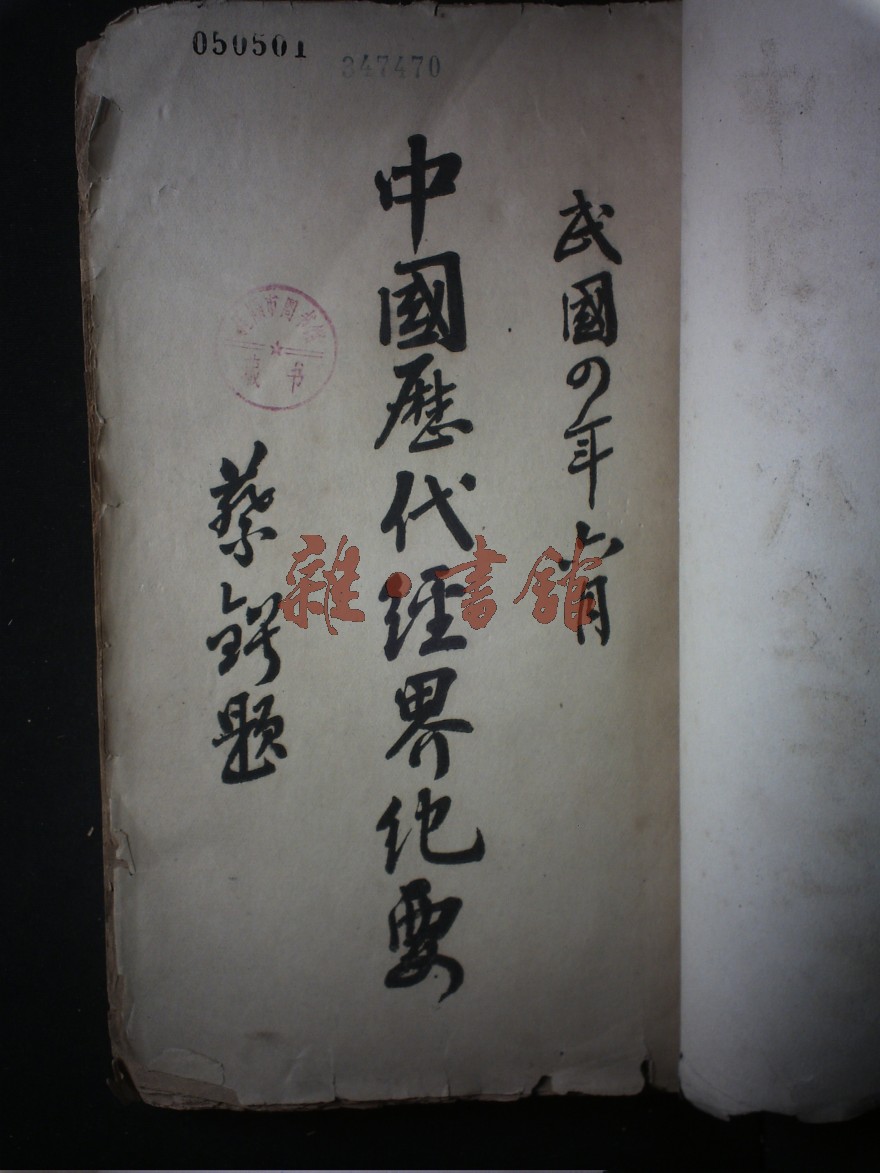 050501
347470
民國四年六月
中國歷代經界紀要
蔡鍔題
雜·書館